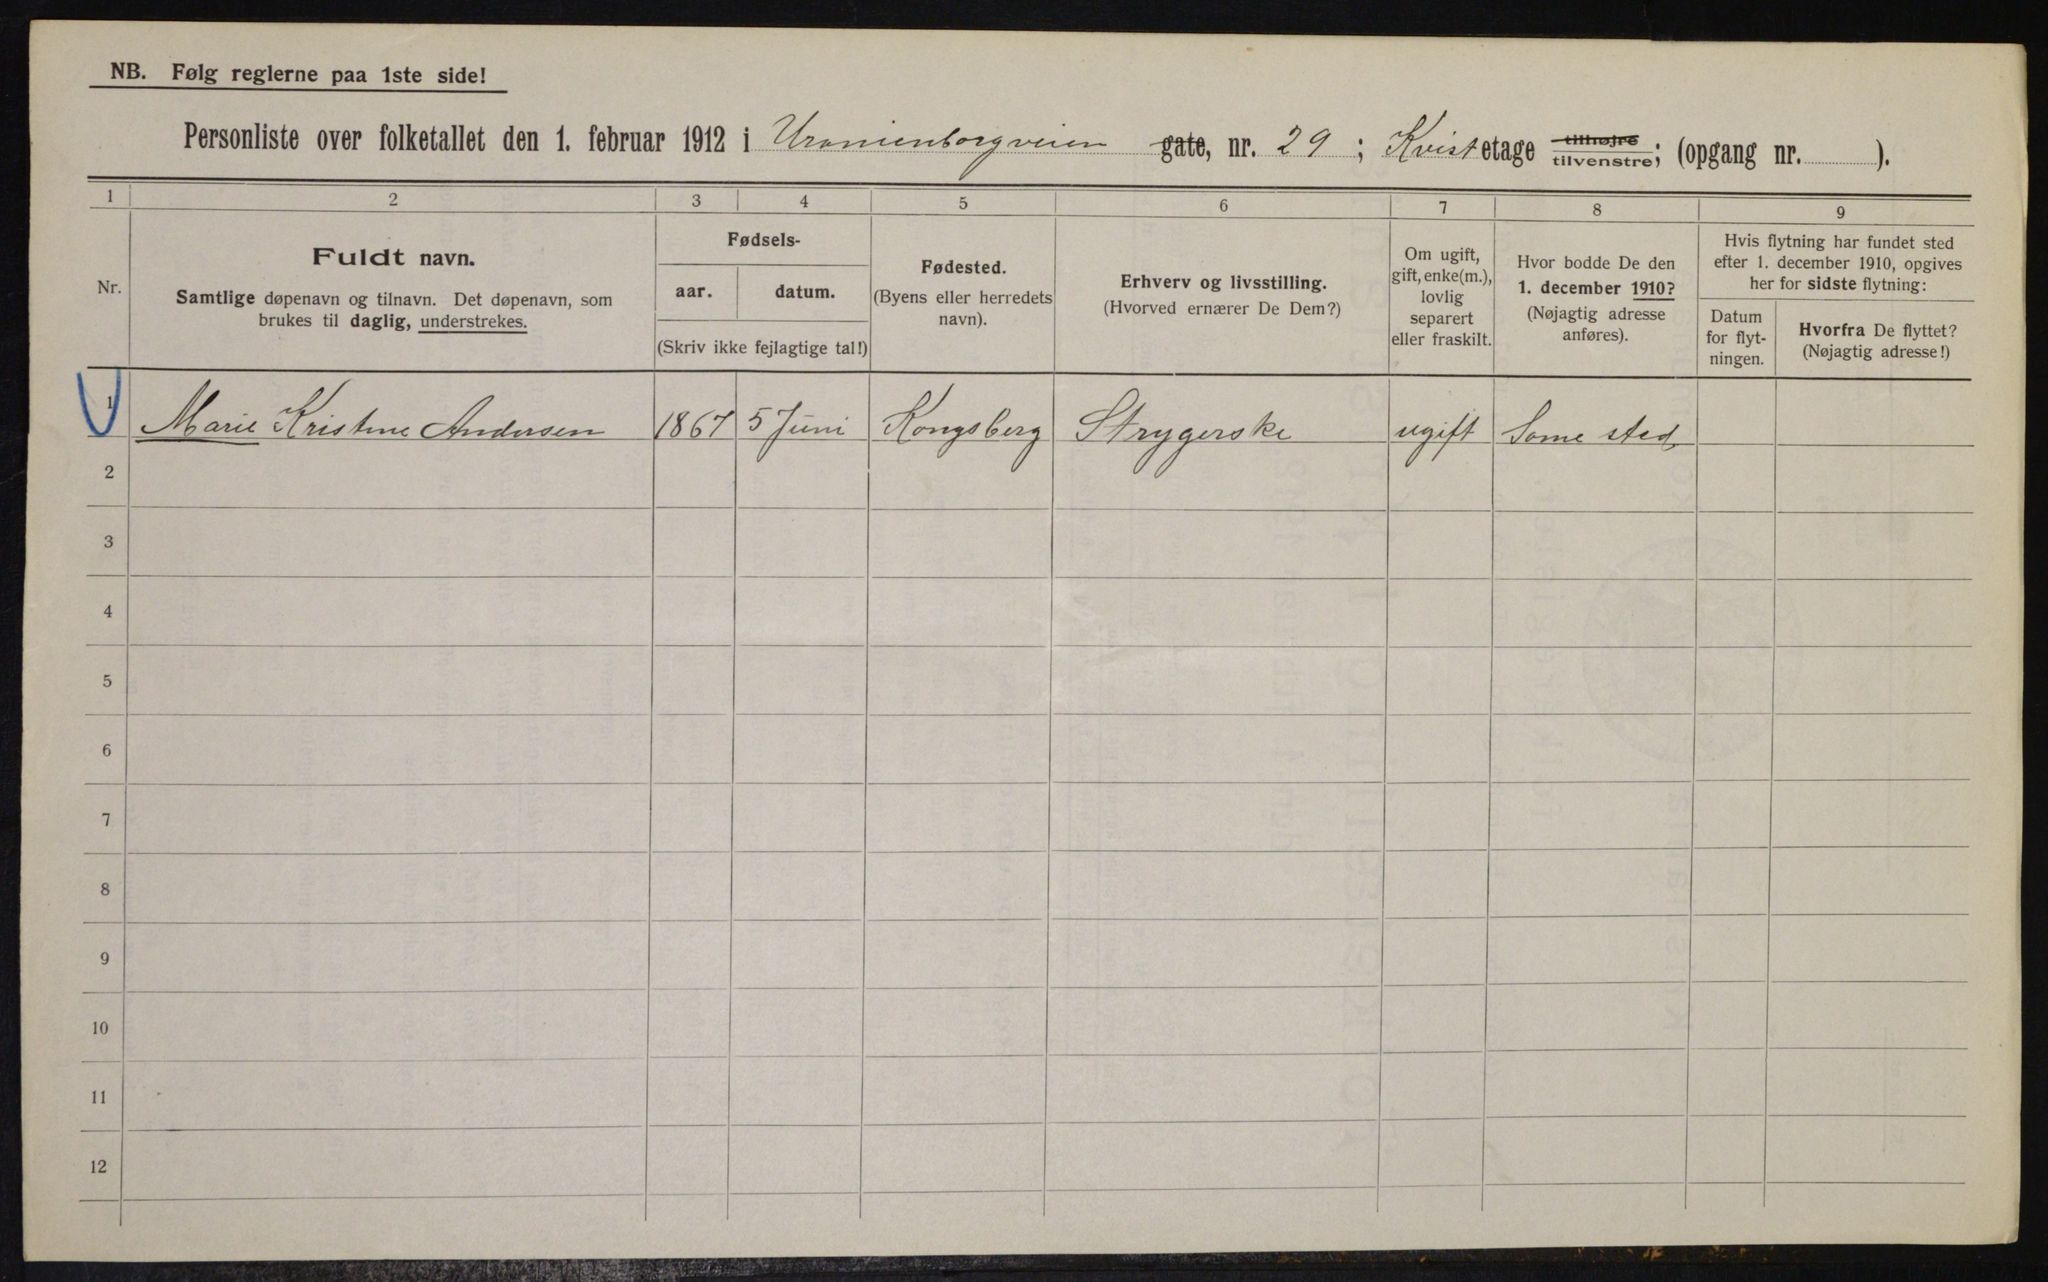 NB. Følg reglerne paa 1ste side!
Personliste over folketallet den 1. februar 1912 i Uranienborgveien gate, nr. 29 ; Kvist etage tilhøjre tilvenstre; (opgang nr. ).
1 2 3 4 5 6 7 8 9
Nr.
Fuldt navn.
Samtlige døpenavn og tilnavn. Det døpenavn, som
brukes til daglig, understrekes.
Fødsels-
aar. datum.
(Skriv ikke fejlagtige tal!)
Fødested.
(Byens eller herredets
navn).
Erhverv og livsstilling.
(Hvorved ernærer De Dem?)
Om ugift,
gift, enke(m.),
lovlig
separert
eller fraskilt.
Hvor bodde De den
1. december 1910?
(Nøjagtig adresse
anføres).
Hvis flytning har fundet sted
efter 1. december 1910, opgives
her for sidste flytning:
Datum
for flyt-
ningen.
Hvorfra De flyttet?
(Nøjagtig adresse!)
1 Marie Kristine Andersen 1867 5 Juni Kongsberg Strygerske ugift Same sted
2
3
4
5
6
7
8
9
10
11
12